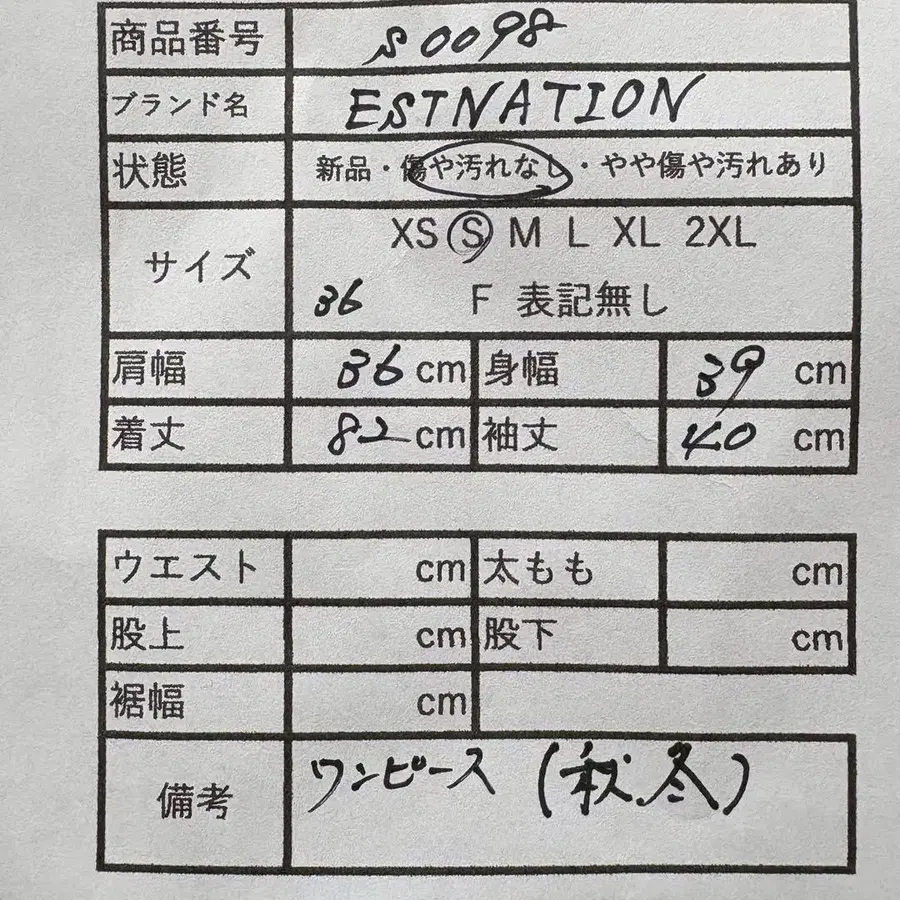 商品番号 S0098
ブランド名 ESTNATION
状態 新品・傷や汚れなし・やや傷や汚れあり
サイズ XS S M L XL 2XL
36 F 表記無し
肩幅 36 cm 身幅 39 cm
着丈 82 cm 袖丈 40 cm
ウエスト cm 太もも cm
股上 cm 股下 cm
裾幅 cm
備考 ワンピース (秋.冬)